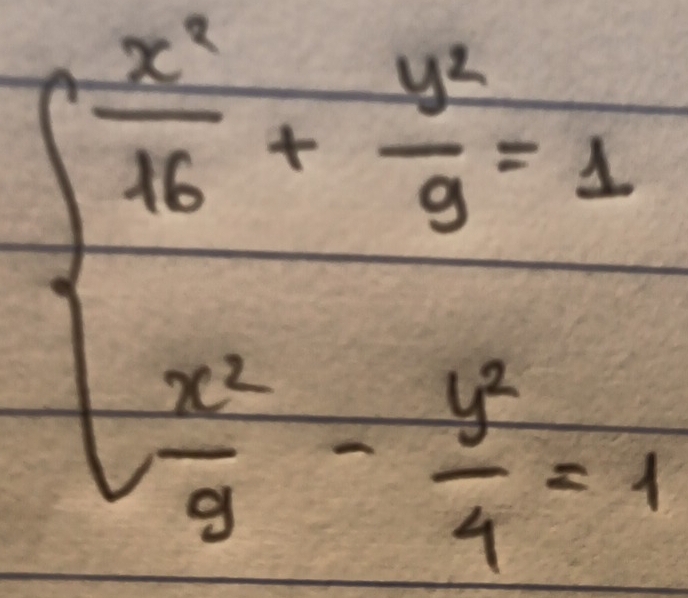 x²/16 + y²/9 = 1
x²/9 - y²/4 = 1